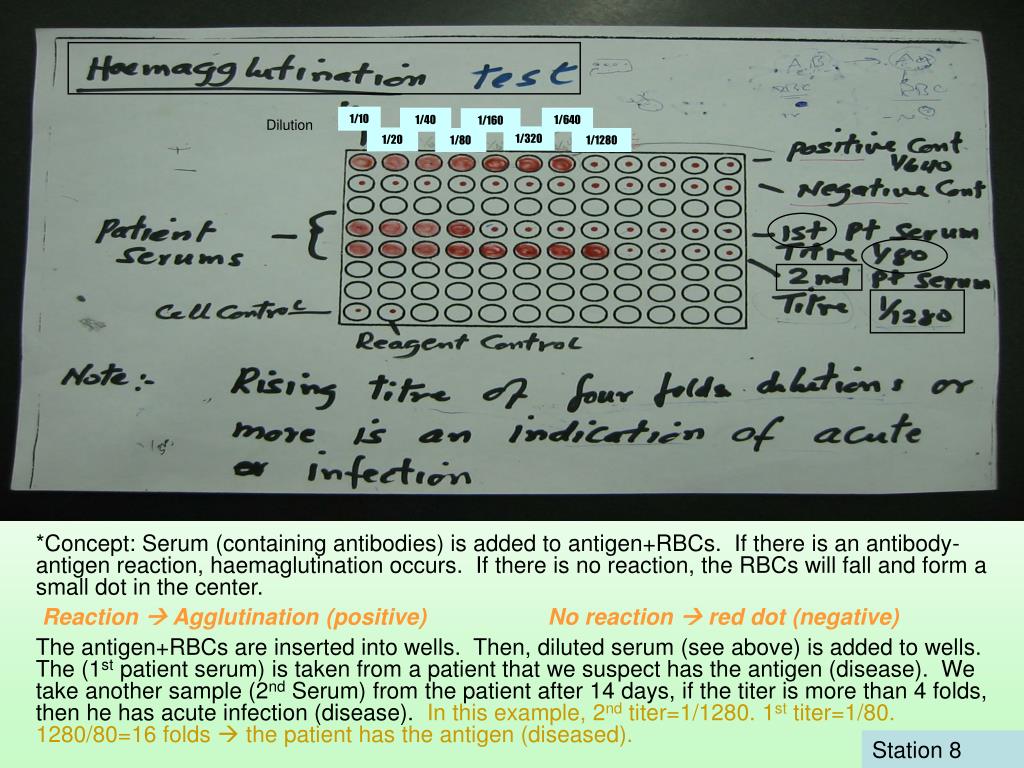 Haemagglutination test
Dilution
1/10 1/40 1/160 1/640
1/20 1/80 1/320 1/1280
Positive Cont
1/640
Negative Cont
Patient
Serums
1st Pt Serum
Titre 1/80
2nd Pt Serum
Titre 1/1280
Cell Control
Reagent Control
Note:- Rising titre of four folds dilutions or
more is an indication of acute
infection
*Concept: Serum (containing antibodies) is added to antigen+RBCs. If there is an antibody-
antigen reaction, haemaglutination occurs. If there is no reaction, the RBCs will fall and form a
small dot in the center.
Reaction → Agglutination (positive) No reaction → red dot (negative)
The antigen+RBCs are inserted into wells. Then, diluted serum (see above) is added to wells.
The (1st patient serum) is taken from a patient that we suspect has the antigen (disease). We
take another sample (2nd Serum) from the patient after 14 days, if the titer is more than 4 folds,
then he has acute infection (disease). In this example, 2nd titer=1/1280. 1st titer=1/80.
1280/80=16 folds → the patient has the antigen (diseased).
Station 8